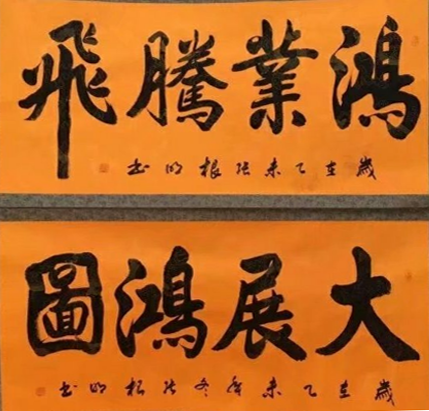 鴻業騰飛
歲在乙未张根明书
大展鴻圖
歲在乙未年冬张根明书